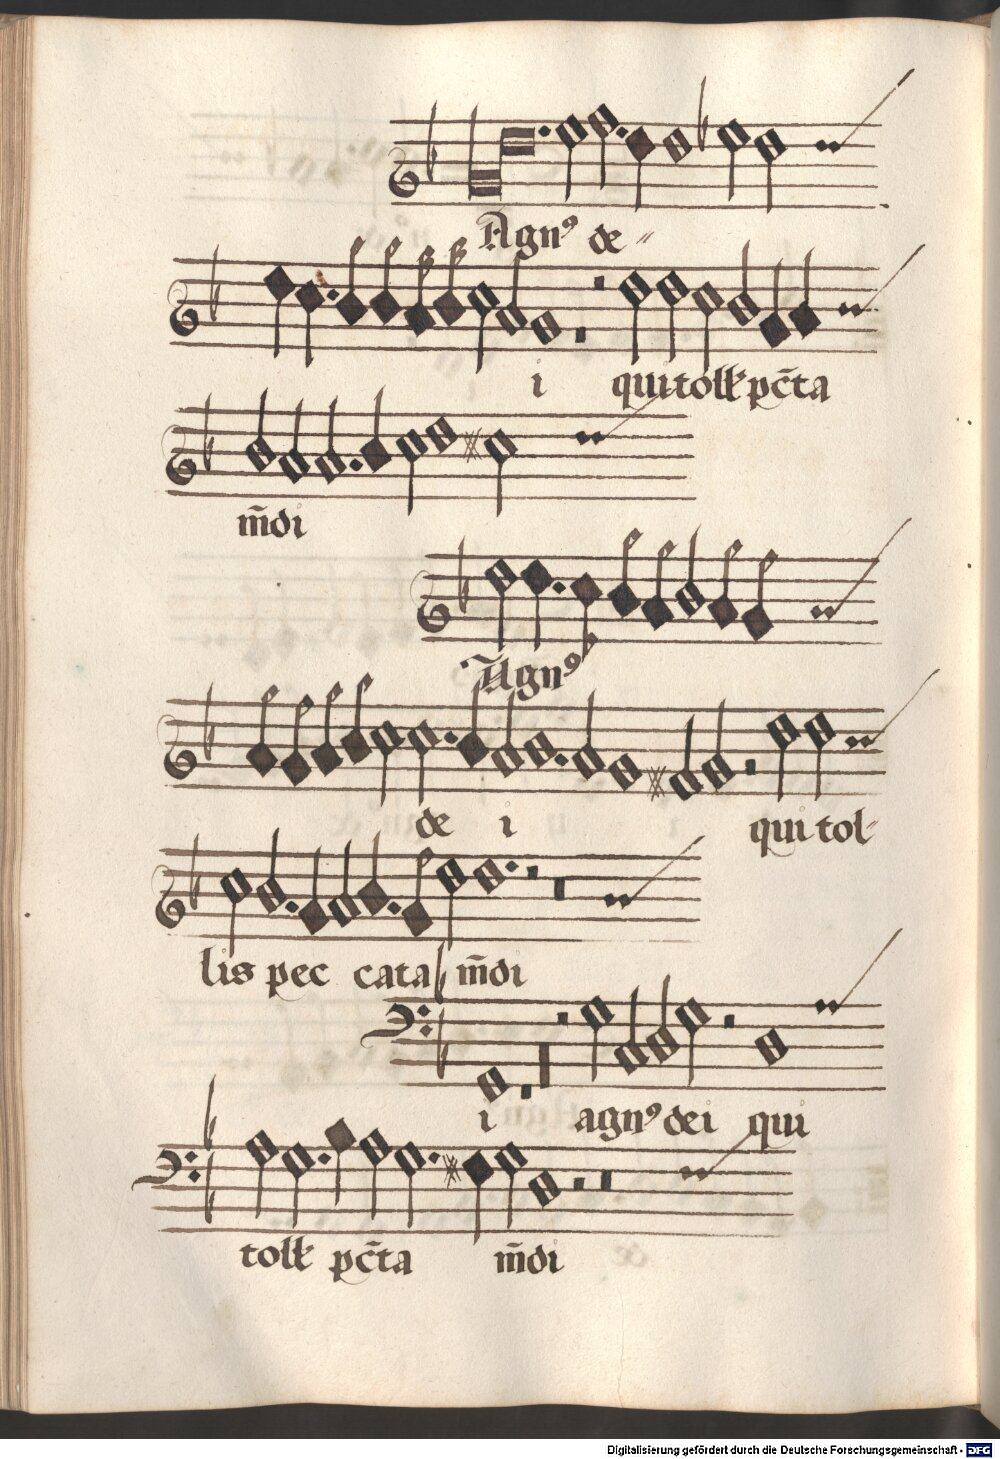 Agnꝰ de
i qui tollꝭ pc̃ta
m̃di
Agnꝰ
de i qui tol
lis pec cata m̃di
i agnꝰ dei qui
tollꝭ pc̃ta m̃di
Digitalisierung gefördert durch die Deutsche Forschungsgemeinschaft - DFG